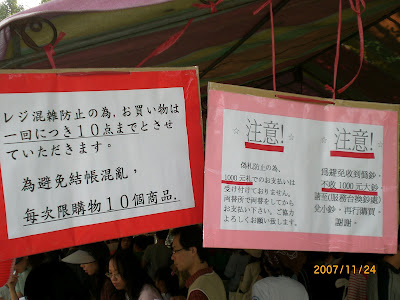 レジ混雑防止の為、お買い物は
一回につき10点までとさせ
ていただきます。
為避免結帳混亂，
每次限購物10個商品.
☆注意!☆
偽札防止の為、
1000元札でのお支払いは
受け付けておりません。
両替所で両替をしてから
お支払い下さい。ご協力
よろしくお願い致します。
☆注意!☆
為避免收到偽鈔，
不收1000元大鈔
請至(服務台換鈔處)
兌小鈔，再行購買。
謝謝。
2007/11/24